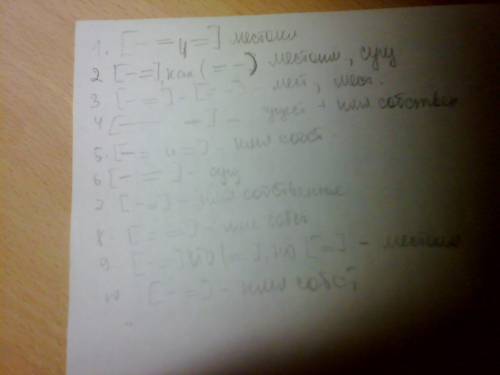 1. [— = и =] местоим
2 [— =], как (= —) местоим, сущ
3 [— =] - [= —] - мест, мест.
4 [— =] - сущест + имя собствен
5. [— = и =] - имя собст.
6 [— =] - сущ
7 [— =] - имя собственное
8. [— =] - имя собст
9. [— =] [=], но [=] - местоим
10 [— =] - имя собст